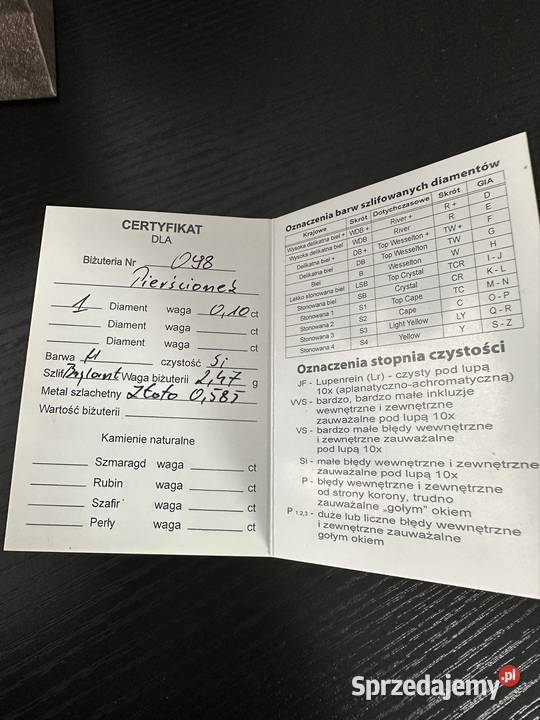 CERTYFIKAT
DLA
Biżuteria Nr 098
Pierścionek
1 Diament waga 0,10 ct
Diament waga ct
Diament waga ct
Barwa H czystość Si
Szlif Brylant Waga biżuterii 2,47 g
Metal szlachetny Złoto 0,585
Wartość biżuterii
Kamienie naturalne
Szmaragd waga ct
Rubin waga ct
Szafir waga ct
Perły waga ct
Oznaczenia barw szlifowanych diamentów
Krajowe Skrót Dotychczasowe Skrót GIA
Wysoka delikatna biel + WDB + River + R + D
Wysoka delikatna biel WDB River R E
Delikatna biel + DB + Top Wesselton + TW + F
Delikatna biel DB Top Wesselton TW G
Biel B Wesselton W H
Lekko stonowana biel LSB Top Crystal TCR I - J
Stonowana biel SB Crystal CR K - L
Stonowana 1 S1 Top Cape TC M - N
Stonowana 2 S2 Cape C O - P
Stonowana 3 S3 Light Yellow LY Q - R
Stonowana 4 S4 Yellow Y S - Z
Oznaczenia stopnia czystości
JF - Lupenrein (Lr) - czysty pod lupą
10x (aplanatyczno-achromatyczną)
VVS - bardzo, bardzo małe inkluzje
wewnętrzne i zewnętrzne
zauważalne pod lupą 10x
VS - bardzo małe błędy wewnętrzne
i zewnętrzne zauważalne
pod lupą 10x
Si - małe błędy wewnętrzne i zewnętrzne
zauważalne pod lupą 10x
P - błędy wewnętrzne i zewnętrzne
od strony korony, trudno
zauważalne „gołym" okiem
P 1,2,3 - duże lub liczne błędy wewnętrzne
i zewnętrzne zauważalne
gołym okiem
Sprzedajemy.pl